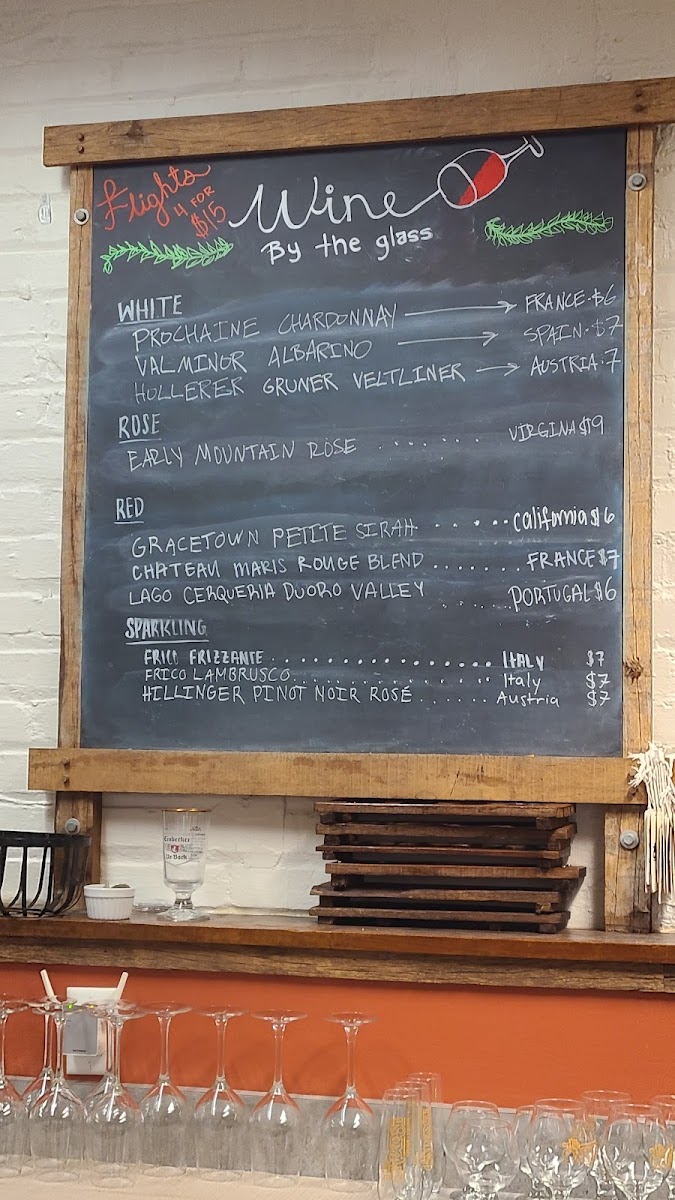 Flights
4 FOR
$15
Wine
By the glass
WHITE
PROCHAINE CHARDONNAY → FRANCE-$6
VALMINOR ALBARINO → SPAIN-$7
HOLLERER GRUNER VELTLINER → AUSTRIA-7
ROSE
EARLY MOUNTAIN ROSE ...... VIRGINA $9
RED
GRACETOWN PETITE SIRAH ..... California $6
CHATEAU MARIS ROUGE BLEND ....... FRANCE $7
LAGO CERQUERIA DUORO VALLEY ...... PORTUGAL $6
SPARKLING
FRICO FRIZZANTE ............... ITALY $7
FRICO LAMBRUSCO ............... Italy $7
HILLINGER PINOT NOIR ROSÉ ...... Austria $7
Einbecker
Ur-Bock